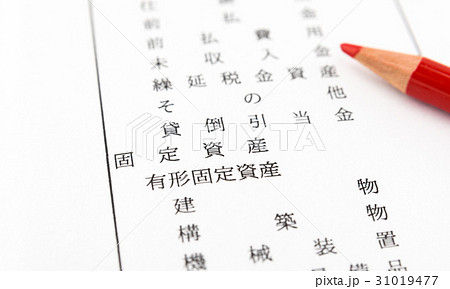 前払金
前払費用
未収入金
繰延税金資産
その他
貸倒引当金
固定資産
有形固定資産
建物
構築物
機械装置
PIXTA
pixta.jp - 31019477